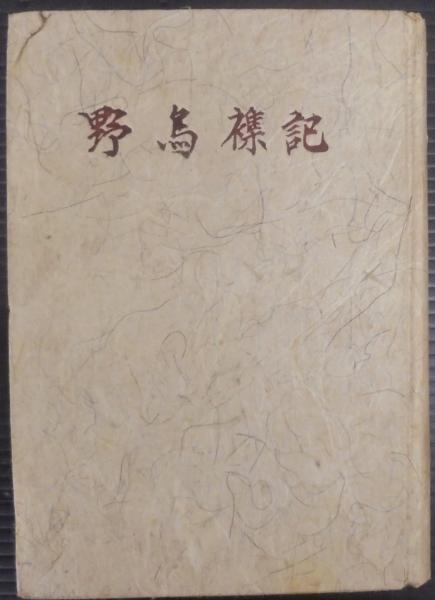 野鳥襍記